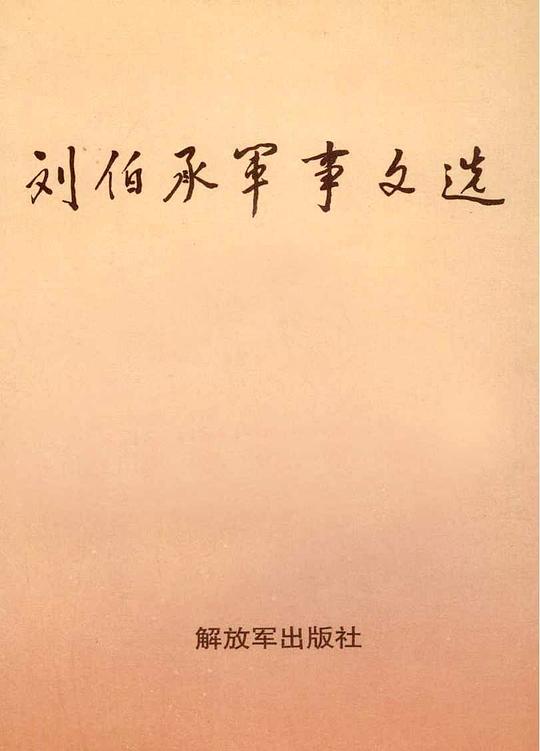 刘伯承軍事文选
解放军出版社